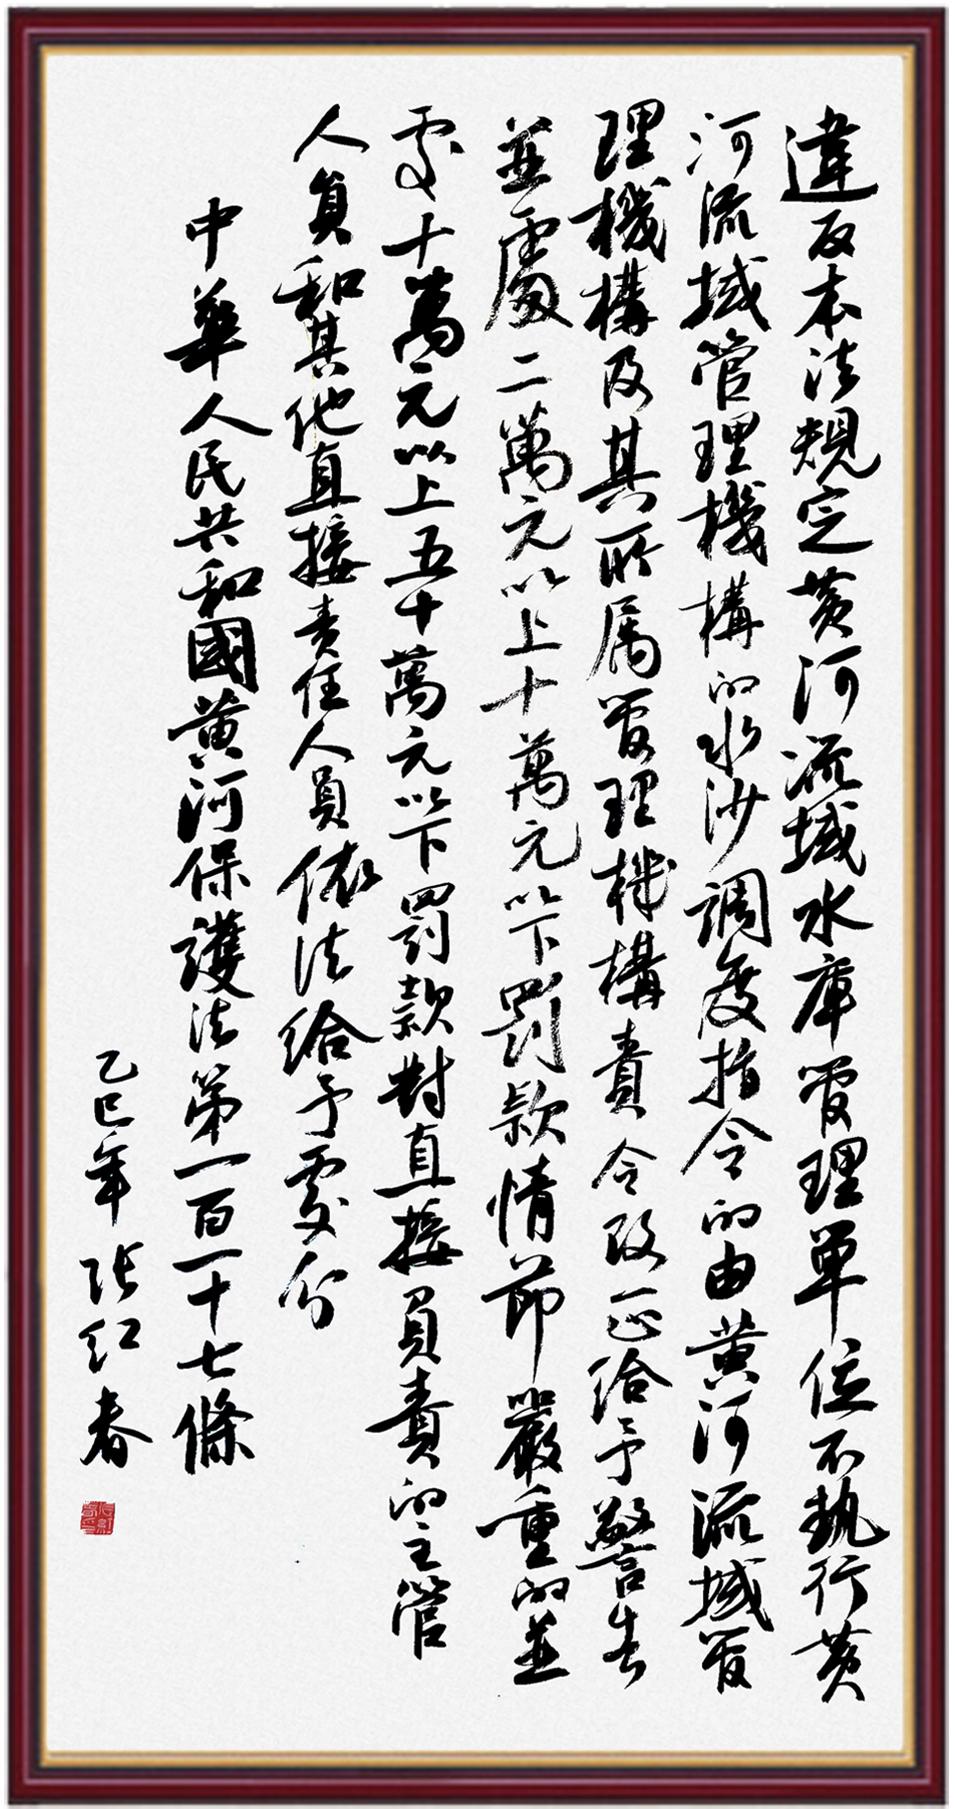 違反本法規定黄河流域水庫管理單位不執行黄
河流域管理機構的水沙調度指令的由黄河流域管
理機構及其所属管理機構責令改正給予警告
並處二萬元以上十萬元以下罰款情節嚴重的並
處十萬元以上五十萬元以下罰款對直接員責的主管
人員和其他直接责任人員依法給予處分
中華人民共和國黄河保護法第一百一十七條
乙巳年 张红春